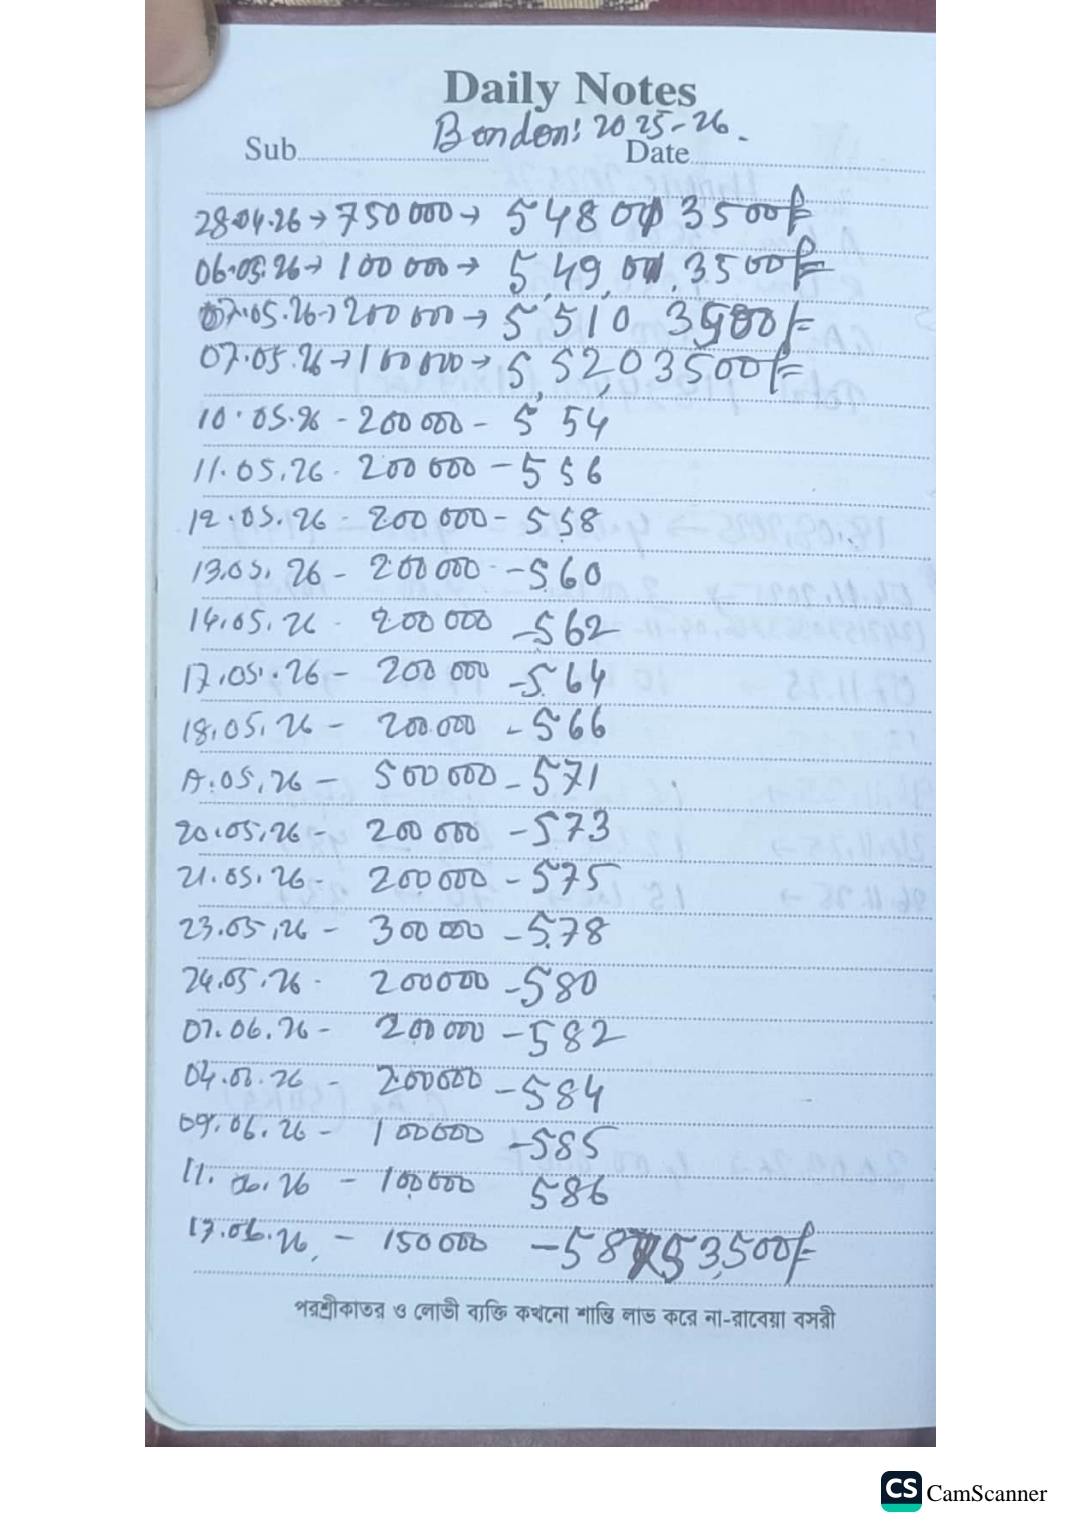 Daily Notes
Bondon: 2025-26.
Sub.................... Date....................
28.04.26 → 750000 → 548003500/=
06.05.26 → 100000 → 5,49,03500/=
07.05.26 → 200000 → 5,5103500/=
07.05.26 → 100000 → 5,52,03500/=
10.05.26 - 200000 - 554
11.05.26 - 200000 - 556
12.05.26 - 200000 - 558
13.05.26 - 200000 - 560
14.05.26 - 200000 - 562
17.05.26 - 200000 - 564
18.05.26 - 200000 - 566
19.05.26 - 500000 - 571
20.05.26 - 200000 - 573
21.05.26 - 200000 - 575
23.05.26 - 300000 - 578
24.05.26 - 200000 - 580
02.06.26 - 200000 - 582
04.06.26 - 200000 - 584
09.06.26 - 100000 - 585
11.06.26 - 100000 586
17.06.26 - 150000 - 58753,500/=
পরশ্রীকাতর ও লোভী ব্যক্তি কখনো শান্তি লাভ করে না-রাবেয়া বসরী
CS CamScanner